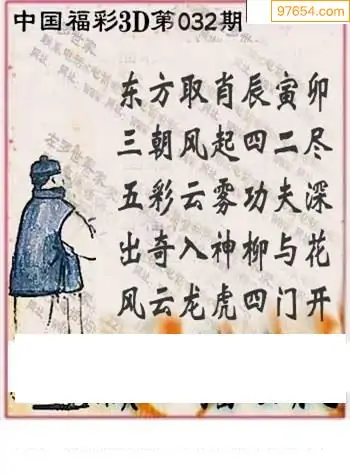 97654.com
中国福彩3D第032期
东方取肖辰寅卯
三朝风起四二尽
五彩云雾功夫深
出奇入神柳与花
风云龙虎四门开